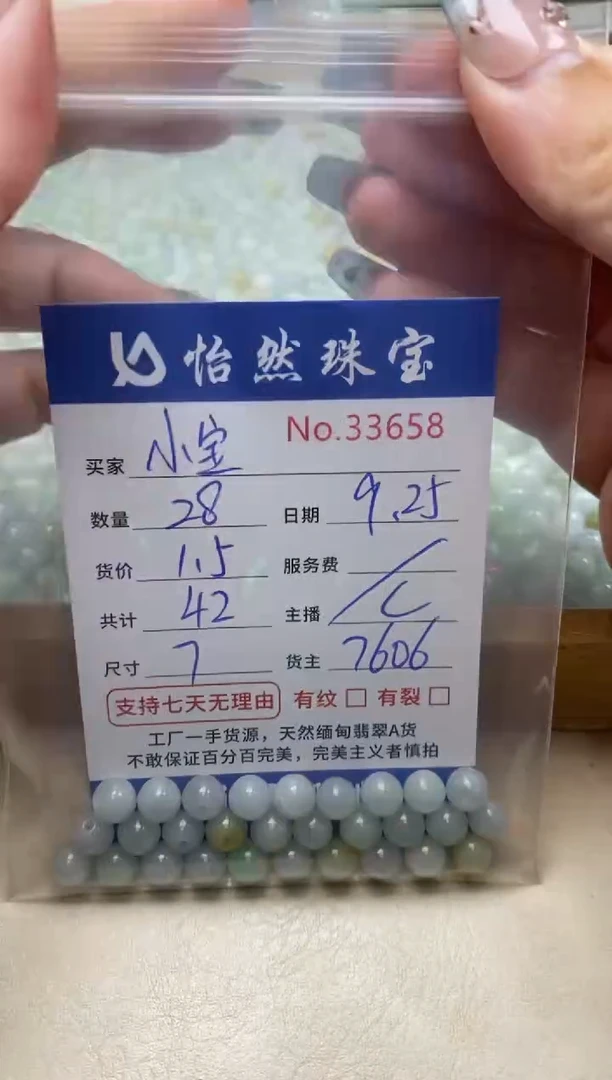 怡然珠宝
No.33658
买家 小宝
数量 28 日期 9.25
货价 1.5 服务费 /
共计 42 主播 C
尺寸 7 货主 7606
支持七天无理由 有纹 □ 有裂 □
工厂一手货源，天然缅甸翡翠A货
不敢保证百分百完美，完美主义者慎拍